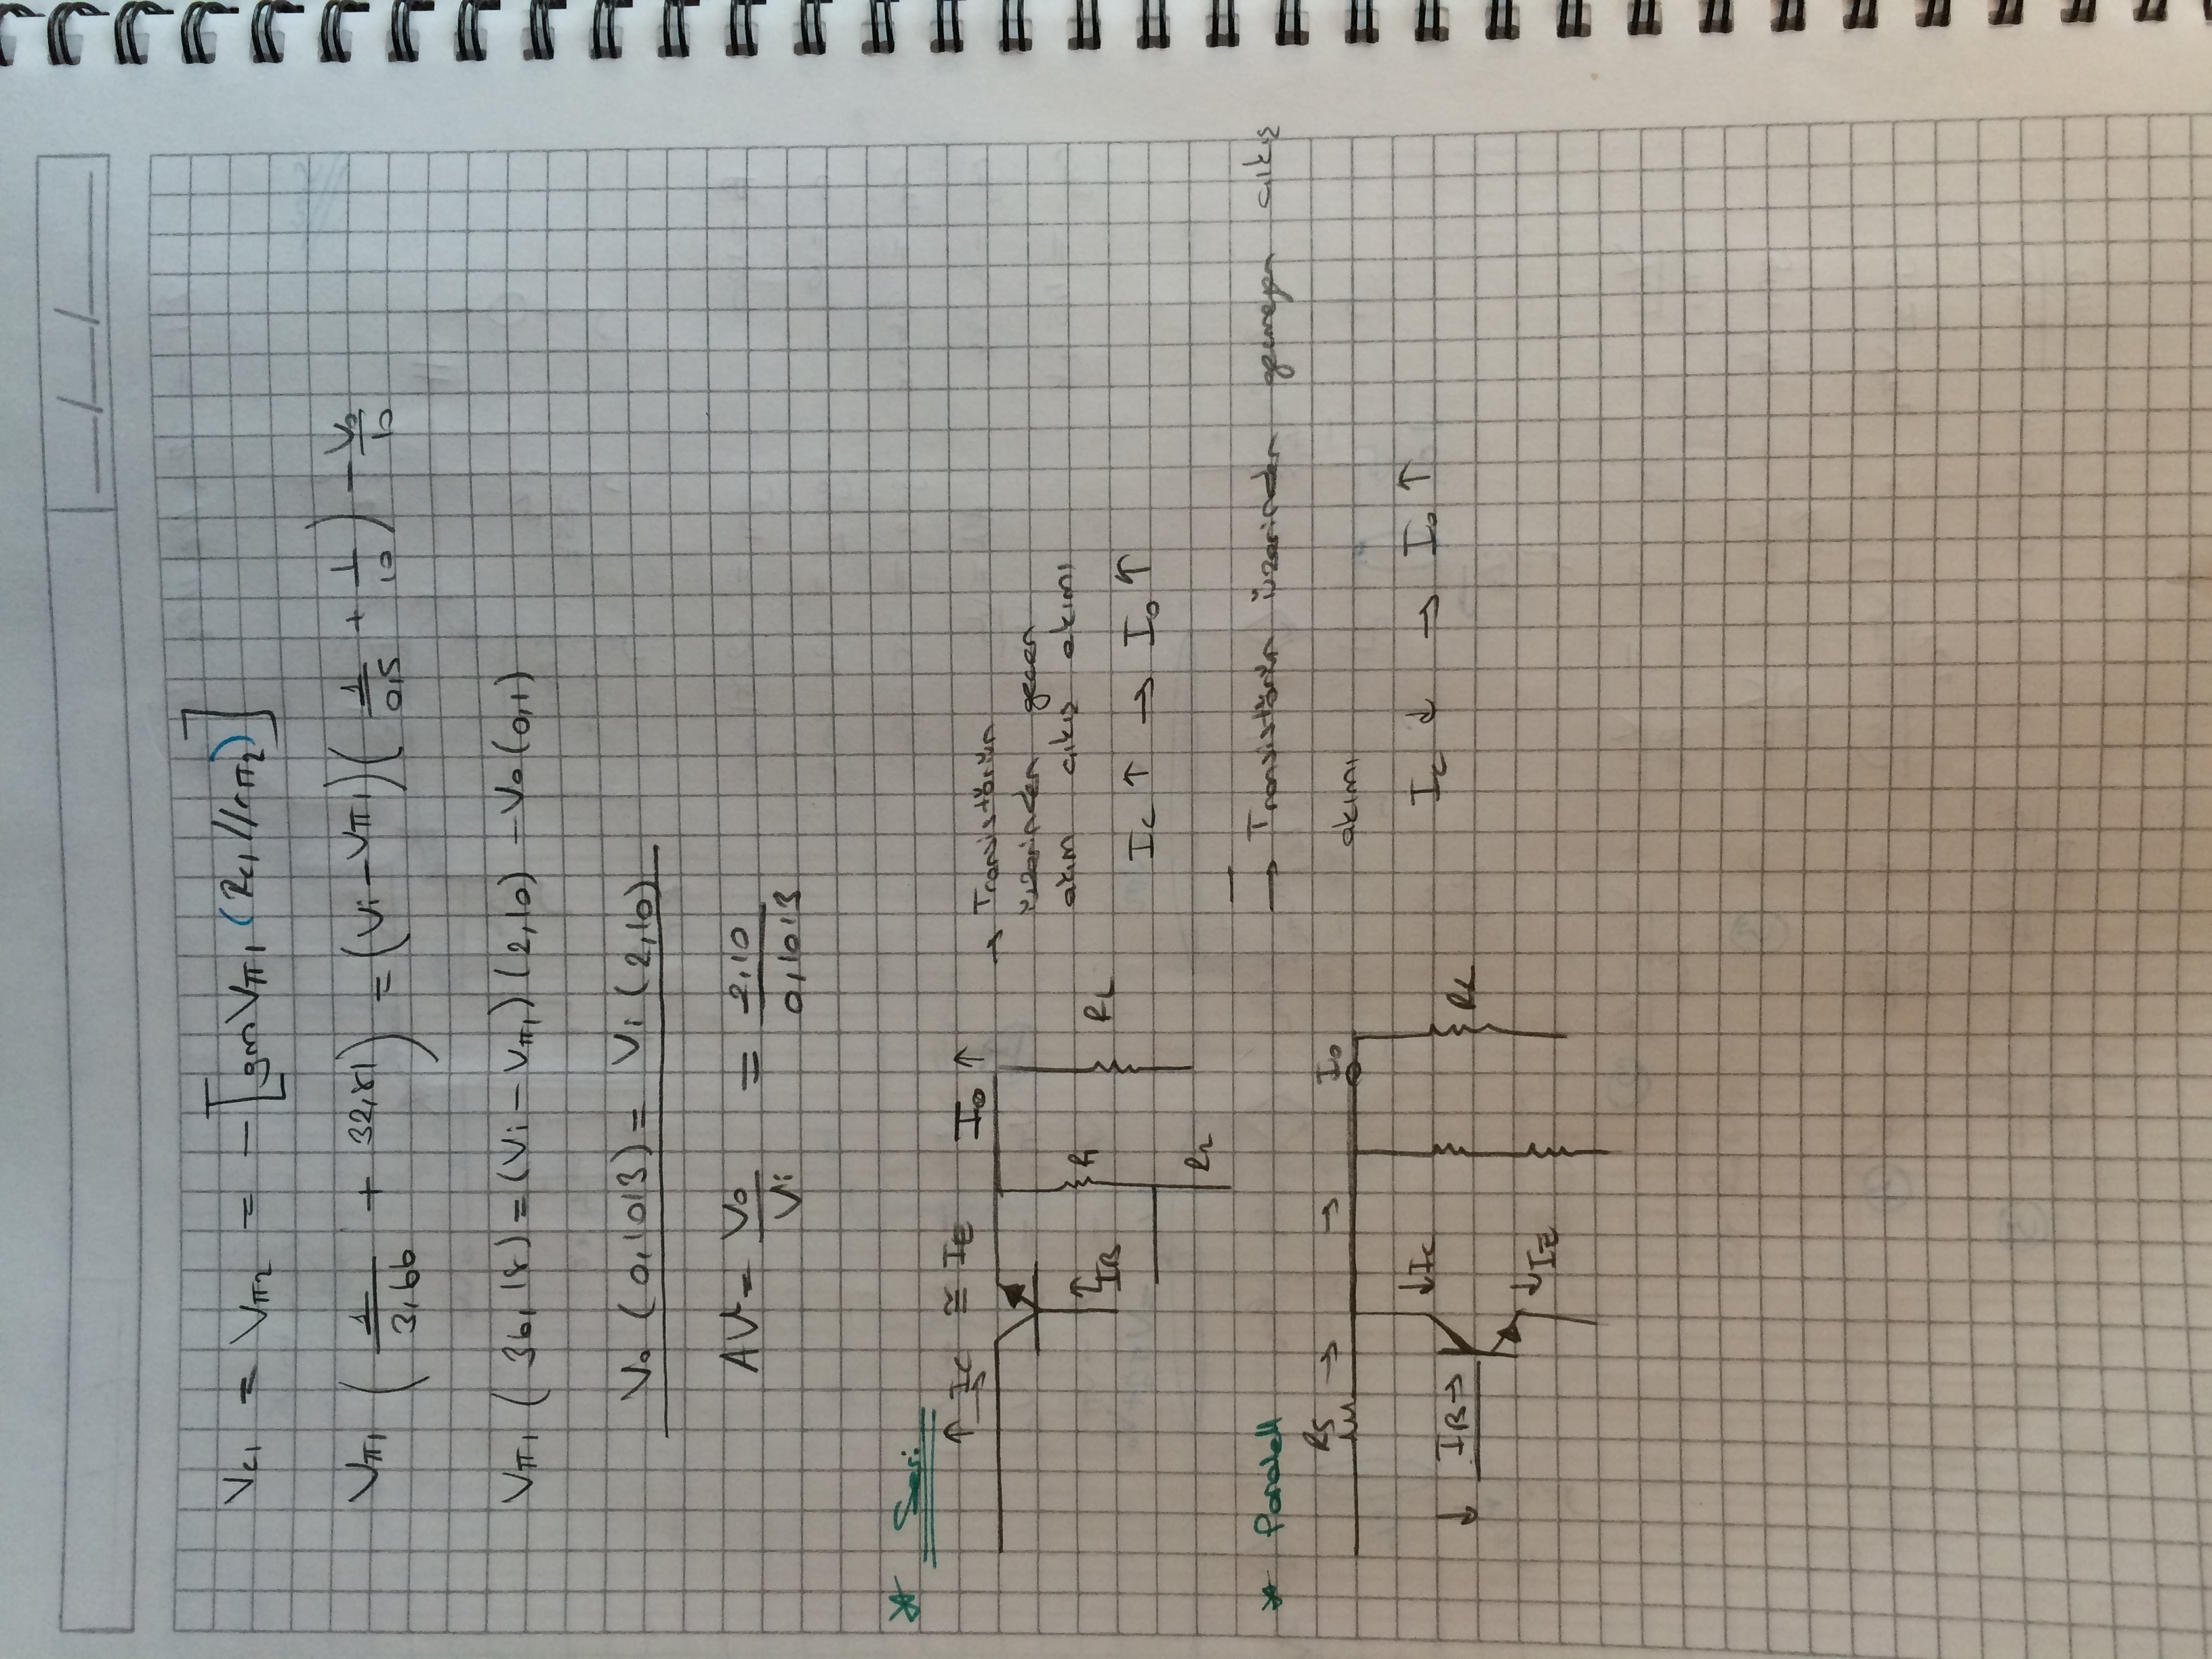 Vc1 = Vπ2 = - [gm Vπ1 (Rc1 // rπ2)]
Vπ1 ( 1/3,66 + 32,81 ) = (Vi - Vπ1) ( 1/0,5 + 1/10 ) - Vo/10
Vπ1 ( 36,18 ) = (Vi - Vπ1) (2,10) - Vo (0,1)
Vo (0,1013) = Vi (2,10)
AV = Vo/Vi = 2,10/0,1013
* Seri
↑ Ic ≅ IE Io ↑
→ Transistörün
üzerinden geçen
akım çıkış akımı
↑ IB R1 RL
Ic ↑ → Io ↑
R2
* Paralell
→ Transistörün üzerinden geçmeyen çıkış
akımı
Rs → → Io
↓ Ic
Ic ↓ → Io ↑
↓ IB → RL
↓ IE